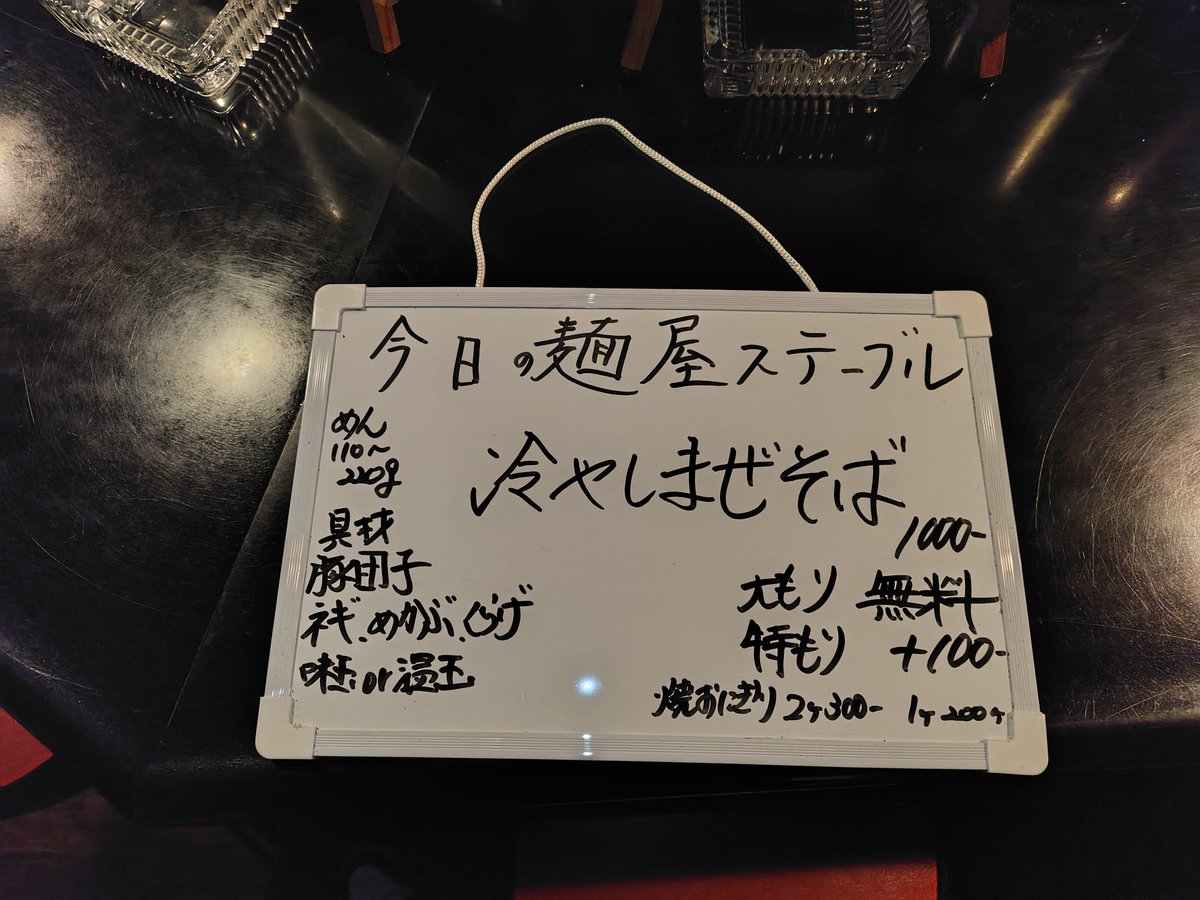 今日の麺屋ステーブル
冷やしまぜそば
1000-
めん
110〜
220g
具材
豚団子
ネギ、めかぶ、くらげ
味玉or温玉
大もり 無料
特もり +100-
焼おにぎり 2ヶ300- 1ヶ200